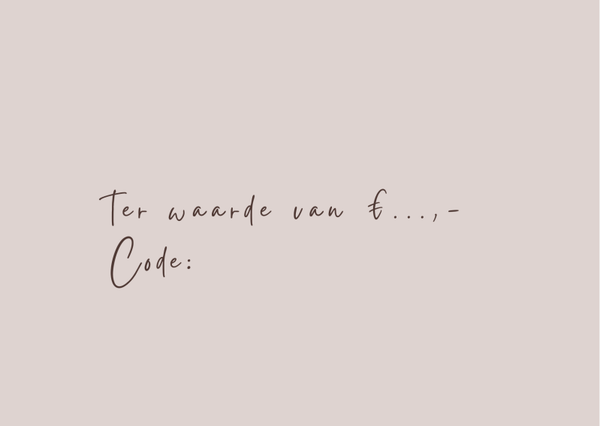 Ter waarde van €...,-
Code: